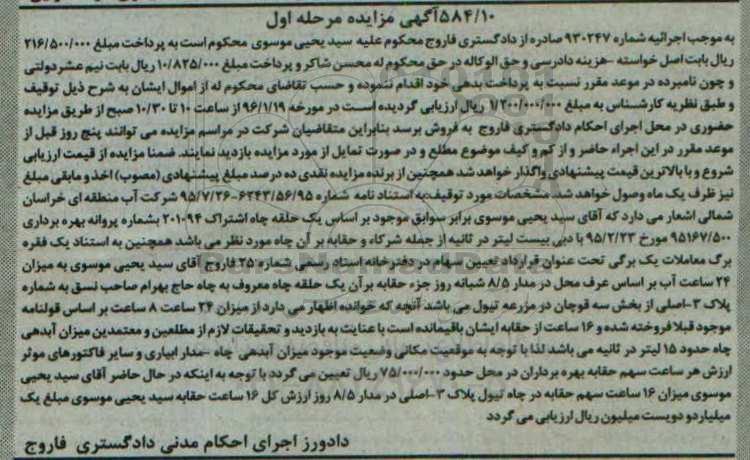 ۵۸۴/۱۰آگهی مزایده مرحله اول
به موجب اجرائیه شماره ۹۳۰۲۴۷ صادره از دادگستری فاروج محکوم علیه سید یحیی موسوی محکوم است به پرداخت مبلغ ۲۱۶/۵۰۰/۰۰۰
ریال بابت اصل خواسته -هزینه دادرسی و حق الوکاله در حق محکوم له محسن شاکر و پرداخت مبلغ ۱۰/۸۲۵/۰۰۰ ریال بابت نیم عشر دولتی
و چون نامبرده در موعد مقرر نسبت به پرداخت بدهی خود اقدام ننموده و حسب تقاضای محکوم له از اموال ایشان به شرح ذیل توقیف
و طبق نظریه کارشناس به مبلغ ۱/۲۰۰/۰۰۰/۰۰۰ ریال ارزیابی گردیده است در مورخه ۹۶/۱/۱۹ از ساعت ۱۰ تا ۱۰/۳۰ صبح از طریق مزایده
حضوری در محل اجرای احکام دادگستری فاروج به فروش برسد بنابراین متقاضیان شرکت در مراسم مزایده می توانند پنج روز قبل از
موعد مقرر در این اجراء حاضر و از کم و کیف موضوع مطلع و در صورت تمایل از مورد مزایده بازدید نمایند. ضمنا مزایده از قیمت ارزیابی
شروع و با بالاترین قیمت پیشنهادی واگذار خواهد شد همچنین از برنده مزایده نقدی ده درصد مبلغ پیشنهادی (مصوب) اخذ و مابقی مبلغ
نیز ظرف یک ماه وصول خواهد شد. مشخصات مورد توقیف:به استناد نامه شماره ۶۲۴۳/۵۶/۹۵-۹۵/۷/۲۶ شرکت آب منطقه ای خراسان
شمالی اشعار می دارد که آقای سید یحیی موسوی برابر سوابق موجود بر اساس یک حلقه چاه اشتراک ۲۰۱۰۹۴ بشماره پروانه بهره برداری
۹۵۱۶۷/۵۰۰ مورخ ۹۵/۲/۲۳ با دبی بیست لیتر در ثانیه از جمله شرکاء و حقابه بر آن چاه مورد نظر می باشد همچنین به استناد یک فقره
برگ معاملات یک برگی تحت عنوان قرارداد تعیین سهام در دفترخانه اسناد رسمی شماره ۲۵ فاروج آقای سید یحیی موسوی به میزان
۲۴ ساعت آب بر اساس عرف محل در مدار ۸/۵ شبانه روز جزء حقابه بر آن یک حلقه چاه معروف به چاه حاج بهرام صاحب نسق به شماره
پلاک ۳-اصلی از بخش سه قوچان در مزرعه تیول می باشد آنچه که خوانده اظهار می دارد از میزان ۲۴ ساعت ۸ ساعت بر اساس قولنامه
موجود قبلا فروخته شده و ۱۶ ساعت از حقابه ایشان باقیمانده است با عنایت به بازدید و تحقیقات لازم از مطلعین و معتمدین میزان آبدهی
چاه حدود ۱۵ لیتر در ثانیه می باشد لذا با توجه به موقعیت مکانی وضعیت موجود میزان آبدهی چاه -مدار ابیاری و سایر فاکتورهای موثر
ارزش هر ساعت سهم حقابه بهره برداران در محل حدود ۷۵/۰۰۰/۰۰۰ ریال تعیین می گردد با توجه به اینکه در حال حاضر آقای سید یحیی
موسوی میزان ۱۶ ساعت سهم حقابه در چاه تیول پلاک ۳-اصلی در مدار ۸/۵ روز ارزش کل ۱۶ ساعت حقابه سید یحیی موسوی مبلغ یک
میلیارد و دویست میلیون ریال ارزیابی می گردد
دادورز اجرای احکام مدنی دادگستری فاروج